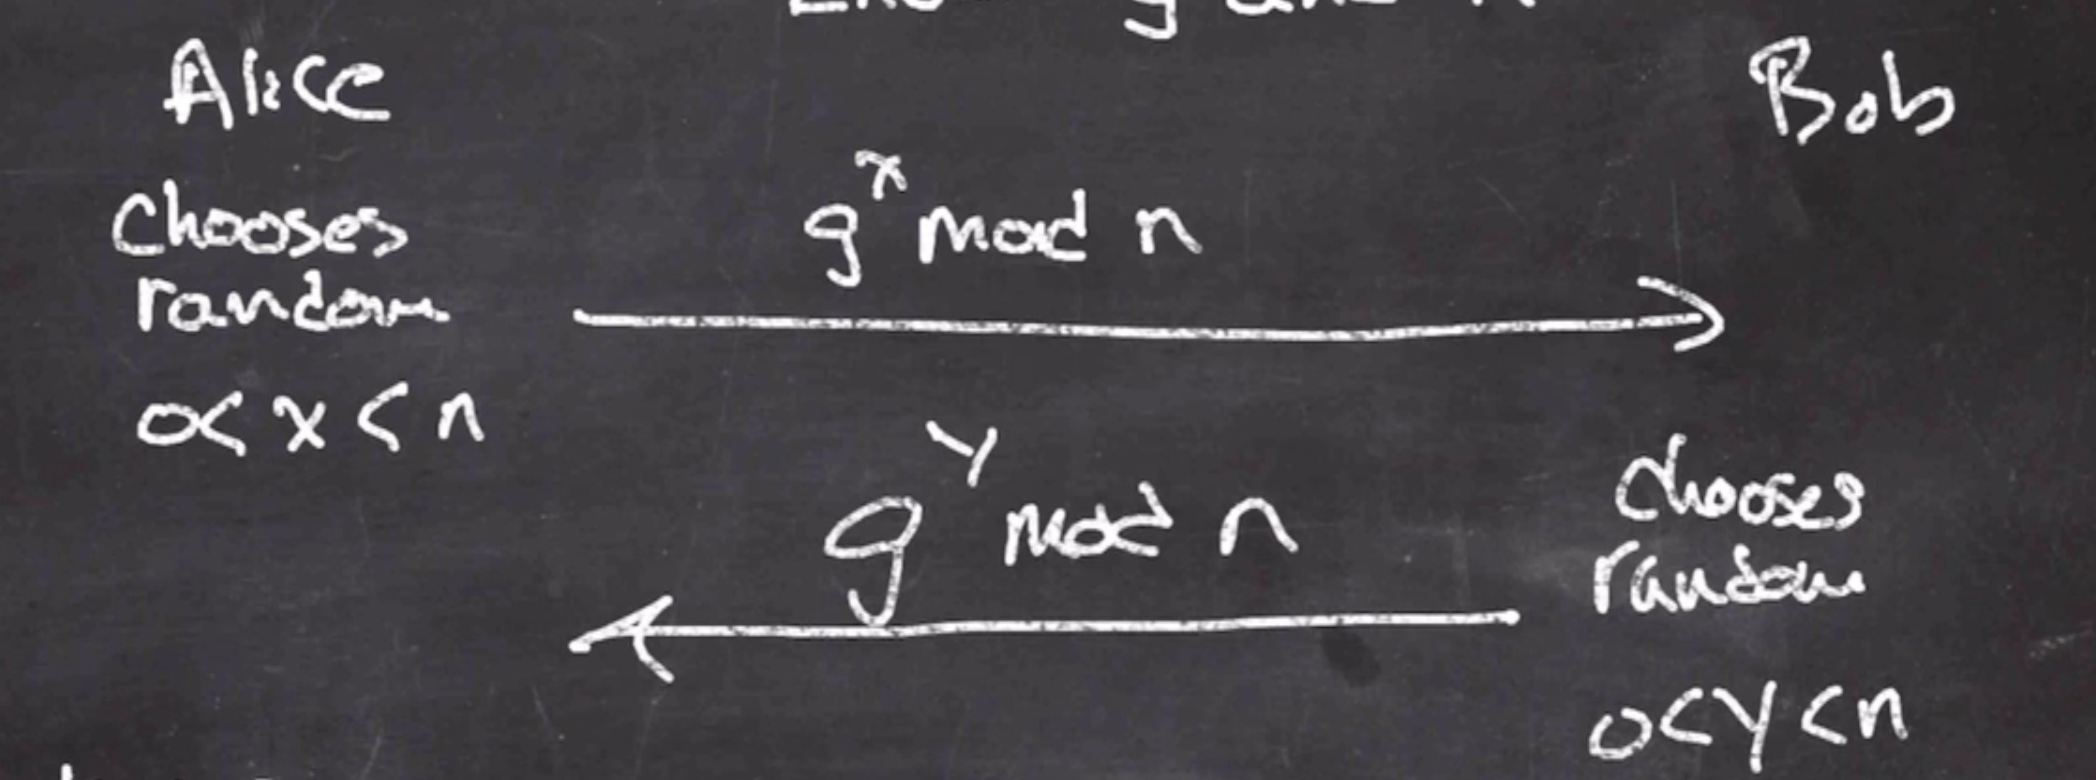 g and n
Alice
Bob
Chooses
random
0<x<n
g^x mod n
g^y mod n
chooses
random
0<y<n